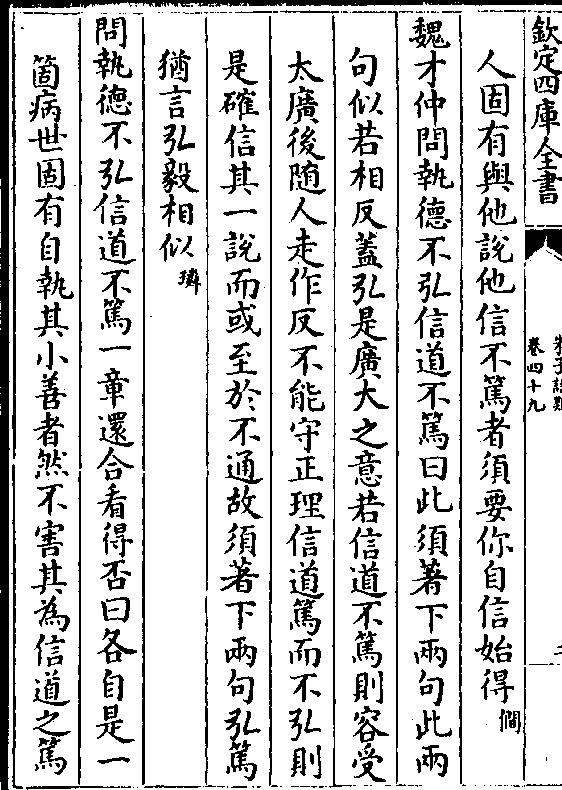 欽定四庫全書
朱子語類
卷四十九
二
人固有與他說他信不篤者須要你自信始得僴
魏才仲問執德不弘信道不篤曰此須著下兩句此兩
句似若相反蓋弘是廣大之意若信道不篤則容受
太廣後随人走作反不能守正理信道篤而不弘則
是確信其一說而或至於不通故須著下兩句弘篤
猶言弘毅相似璘
問執德不弘信道不篤一章還合看得否曰各自是一
箇病世固有自執其小善者然不害其為信道之篤